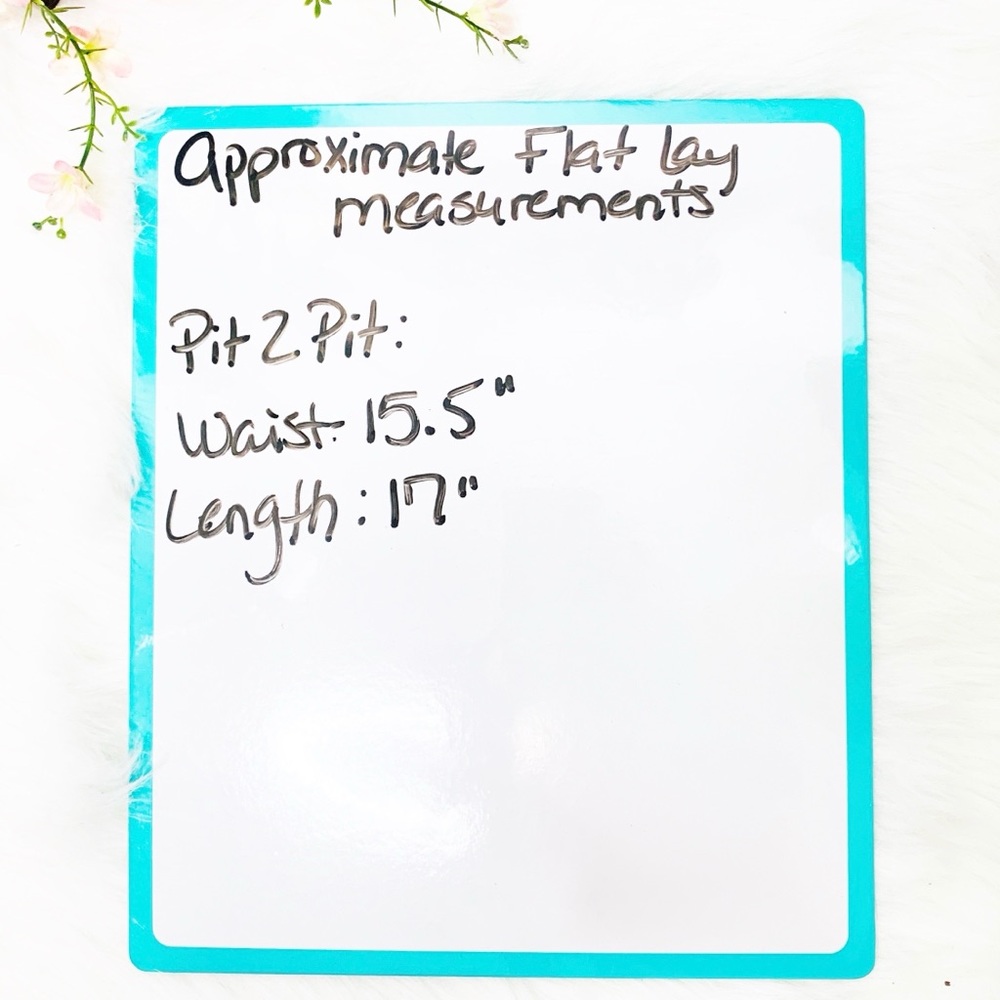 Approximate Flat lay
measurements
Pit 2 Pit:
Waist: 15.5"
Length: 17"